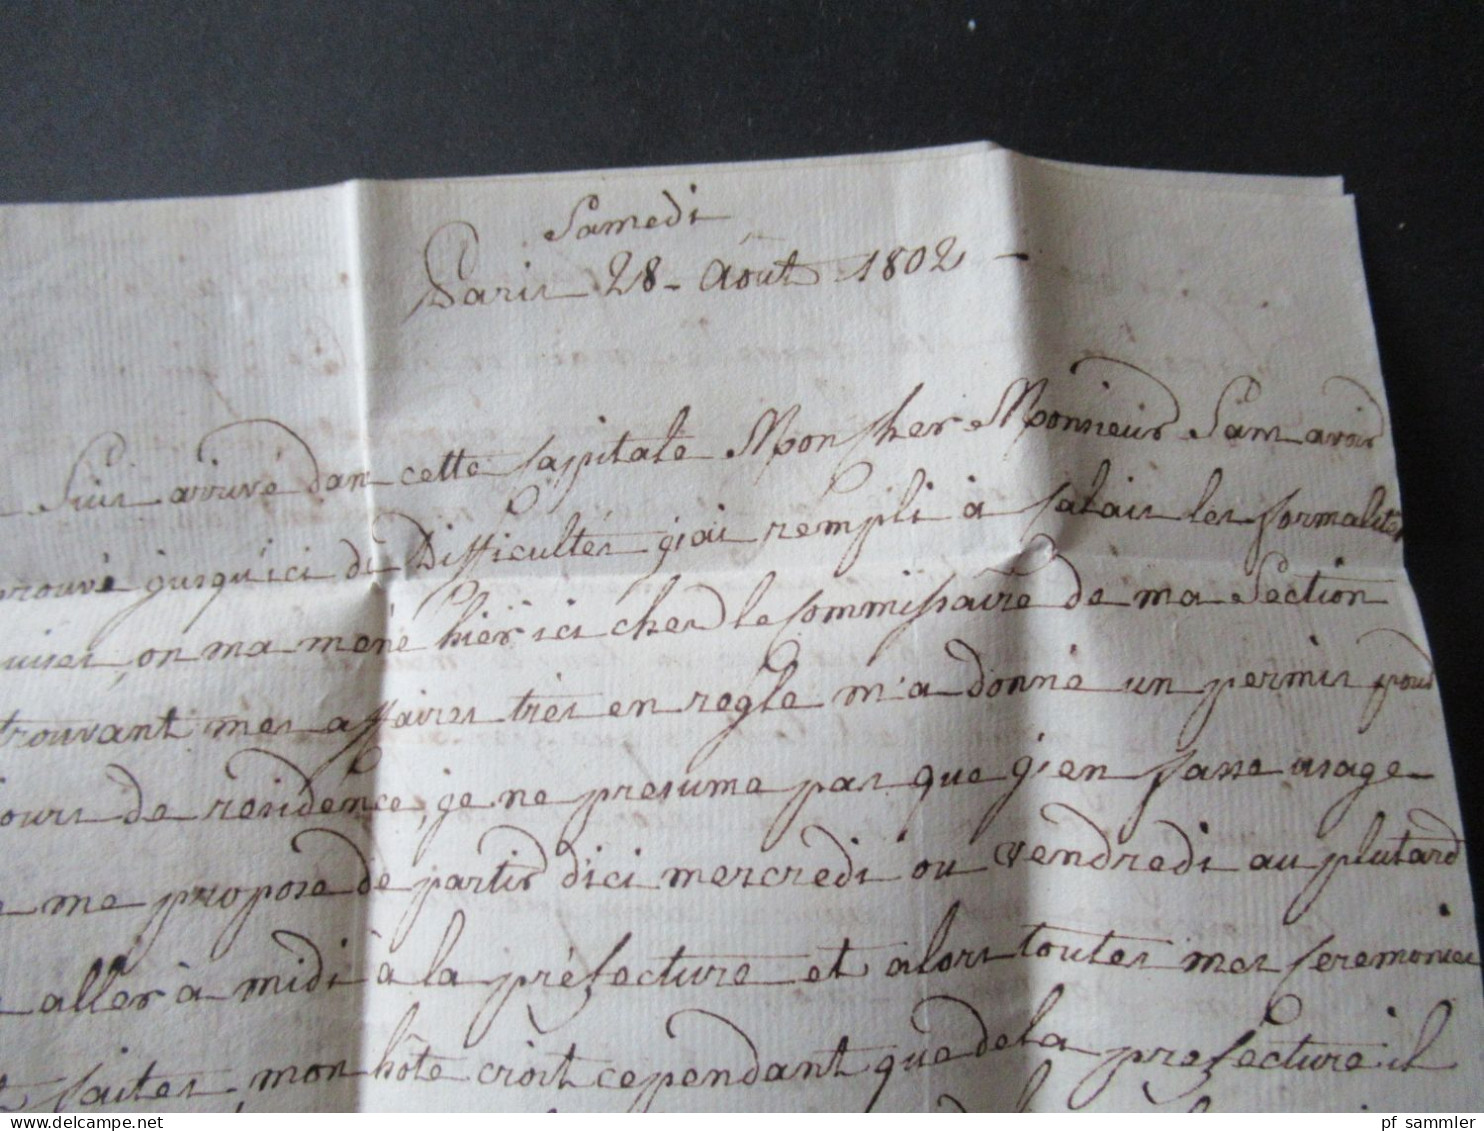 Samedi
Paris 28 - Août 1802 -
Suis arrivé dans cette Capitale Mon Cher Monsieur Sans avoir
prouvé jusqu'ici de Difficultés j'ai rempli à Calais les formalités
on ma mené hier ici ches le Commissaire de ma Section
trouvant mes affaires très en regle m'a donné un permis pour
jours de residence, je ne presume pas que j'en fasse usage
me propose de partir d'ici mercredi ou vendredi au plutard
aller à midi à la préfecture et alors toutes mes Ceremonies
faites. mon hôte croit cependant que de la prefecture il
pf_sammler - delcampe.net